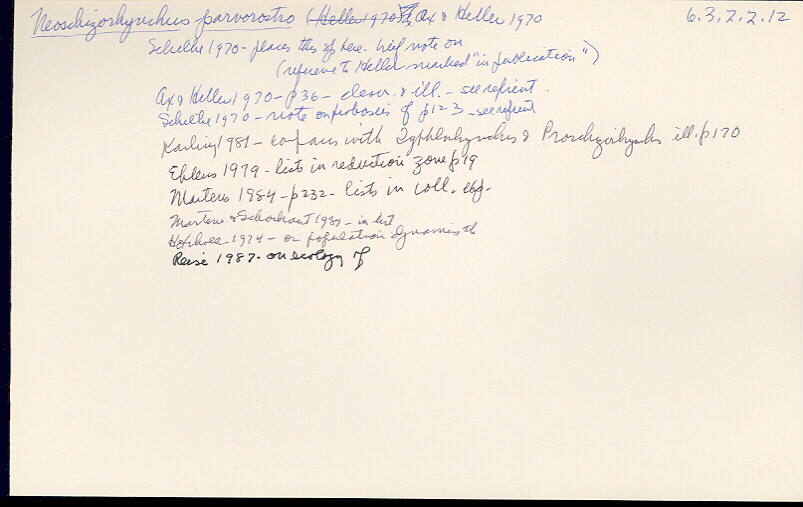 Neoschizorhynchus parvorostro (Heller 1970) Ax & Heller 1970 6.3.2.2.12
Schilke 1970 - places this sp here. brief note on
(reference to Heller marked "in publication")
Ax & Heller 1970 - p36 - descr. & ill. - see reprint.
Schilke 1970 - note on proboscis of p123 - see reprint
Karling 1981 - compares with Typhlorhynchus & Proschizorhynchus ill. p170
Ehlers 1979 - lists in reduction zone p19
Martens 1984 - p232 - lists in coll.
Martens & Schockaert - in list
1974 - on population dynamics
Reise 1987 - on ecology of